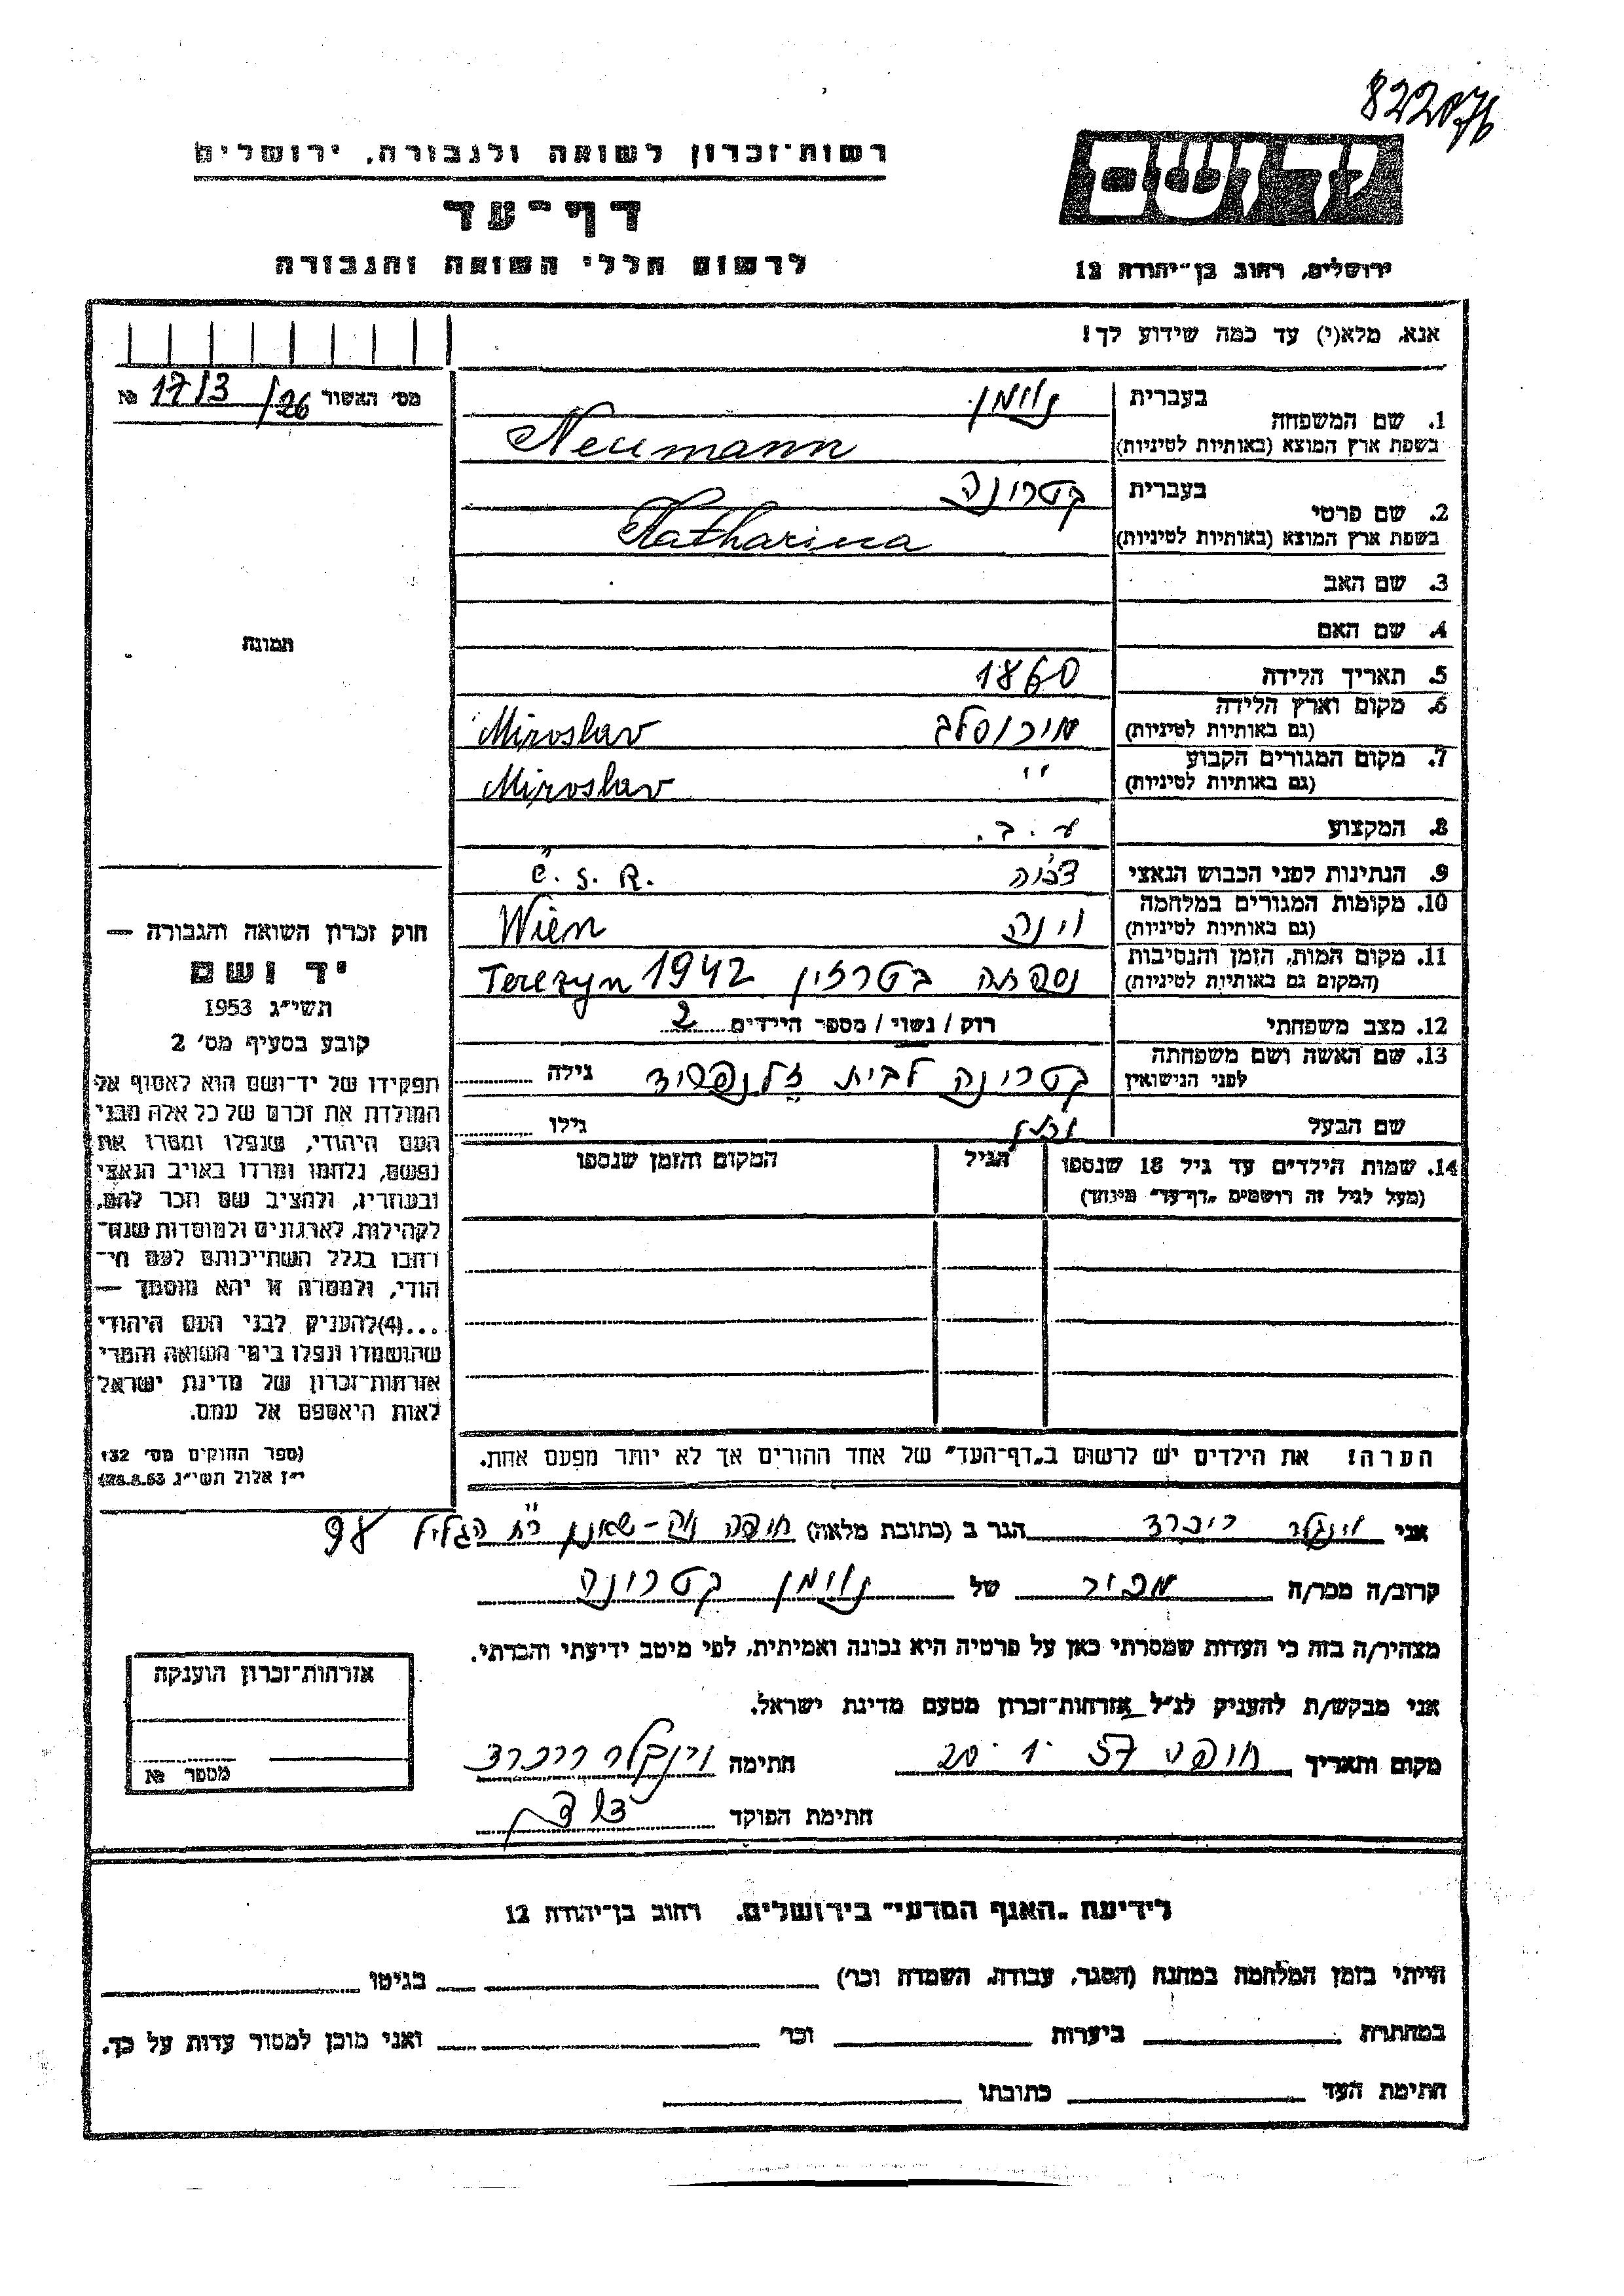 822076
רשות־זכרון לשואה ולגבורה, ירושלים
יד ושם
דף־עד
לרשום חללי השואה והגבורה
ירושלים, רחוב בן־יהודה 12
אנא, מלא(י) עד כמה שידוע לך!
מס׳ האשור 26/ 17/3 №
1. שם המשפחה
בעברית נוימן
בשפת ארץ המוצא (באותיות לטיניות) Neumann
2. שם פרטי
בעברית קטרינה
בשפת ארץ המוצא (באותיות לטיניות) Katharina
3. שם האב
4. שם האם
תמונה
5. תאריך הלידה 1860
6. מקום וארץ הלידה
(גם באותיות לטיניות) מירוסלב Miroslav
7. מקום המגורים הקבוע
(גם באותיות לטיניות) " Miroslav
8. המקצוע ע. ב.
9. הנתינות לפני הכבוש הנאצי צ׳כיה Č. S. R.
10. מקומות המגורים במלחמה
(גם באותיות לטיניות) וינה Wien
11. מקום המות, הזמן והנסיבות
(המקום גם באותיות לטיניות) נספתה בטרזין 1942 Terezyn
12. מצב משפחתי רוק / נשוי / מספר הילדים 2
13. שם האשה ושם משפחתה
לפני הנישואין קטרינה לבית גילה
שם הבעל גילו
14. שמות הילדים עד גיל 18 שנספו
(מעל לגיל זה רושמים „דף־עד״ מיוחד)
הגיל
המקום והזמן שנספו
חוק זכרון השואה והגבורה —
יד ושם
תשי״ג 1953
קובע בסעיף מס׳ 2
תפקידו של יד־ושם הוא לאסוף אל
המולדת את זכרם של כל אלה מבני
העם היהודי, שנפלו ומסרו את
נפשם, נלחמו ומרדו באויב הנאצי
ובעוזריו, ולהציב שם וזכר להם,
לקהילות, לארגונים ולמוסדות שנח־
רחבו בגלל השתייכותם לעם הי־
הודי, ולמטרה זו יהא מוסמך —
...(4)להעניק לבני העם היהודי
שהושמדו ונפלו בימי השואה והמרי
אזרחות־זכרון של מדינת ישראל
לאות היאספם אל עמם.
(ספר החוקים מס׳ 132
י״ז אלול תשי״ג 28.8.53)
הערה! את הילדים יש לרשום ב„דף־העד״ של אחד ההורים אך לא יותר מפעם אחת.
אני וינקלר ריכרד הגר ב (כתובת מלאה) חיפה נוה-שאנן רח׳ הגליל 98
קרוב/ה מכר/ה מכיר של נוימן קטרינה
מצהיר/ה בזה כי העדות שמסרתי כאן על פרטיה היא נכונה ואמיתית, לפי מיטב ידיעתי והכרתי.
אני מבקש/ת להעניק לנ״ל אזרחות־זכרון מטעם מדינת ישראל.
מקום ותאריך חיפה 20.1.57 חתימה וינקלר ריכרד
חתימת הפוקד
אזרחות־זכרון הוענקה
מספר №
לידיעת „האגף המדעי״ בירושלים, רחוב בן־יהודה 12
הייתי בזמן המלחמה במחנה (הסגר, עבודה, השמדה וכו׳) בגיטו
במחתרת ביערות וכו׳ ואני מוכן למסור עדות על כך.
חתימת העד כתובתו